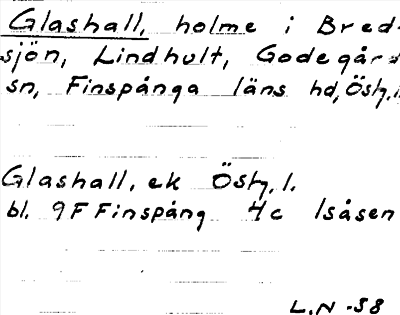 Glashall, holme i Bred-
sjön, Lindhult, Godegård
sn, Finspånga läns hd, Östg.l.
Glashall, ek Östg.l.
bl. 9F Finspång 4c Isåsen
L.N -38